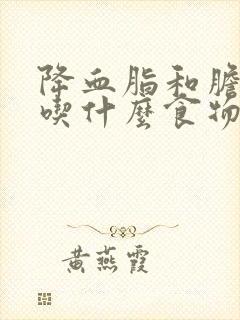 降血脂和膽
喫什麼食物
黃燕霞